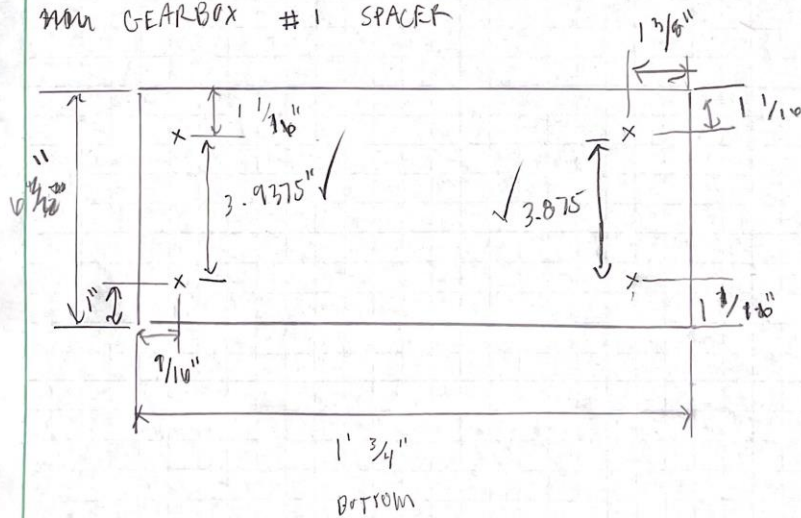 GEARBOX #1 SPACER
1 3/8"
1 1/16"
1 1/16
3.9375" ✓
✓ 3.875
1"
1 1/16"
9/16"
1' 3/4"
BOTTOM